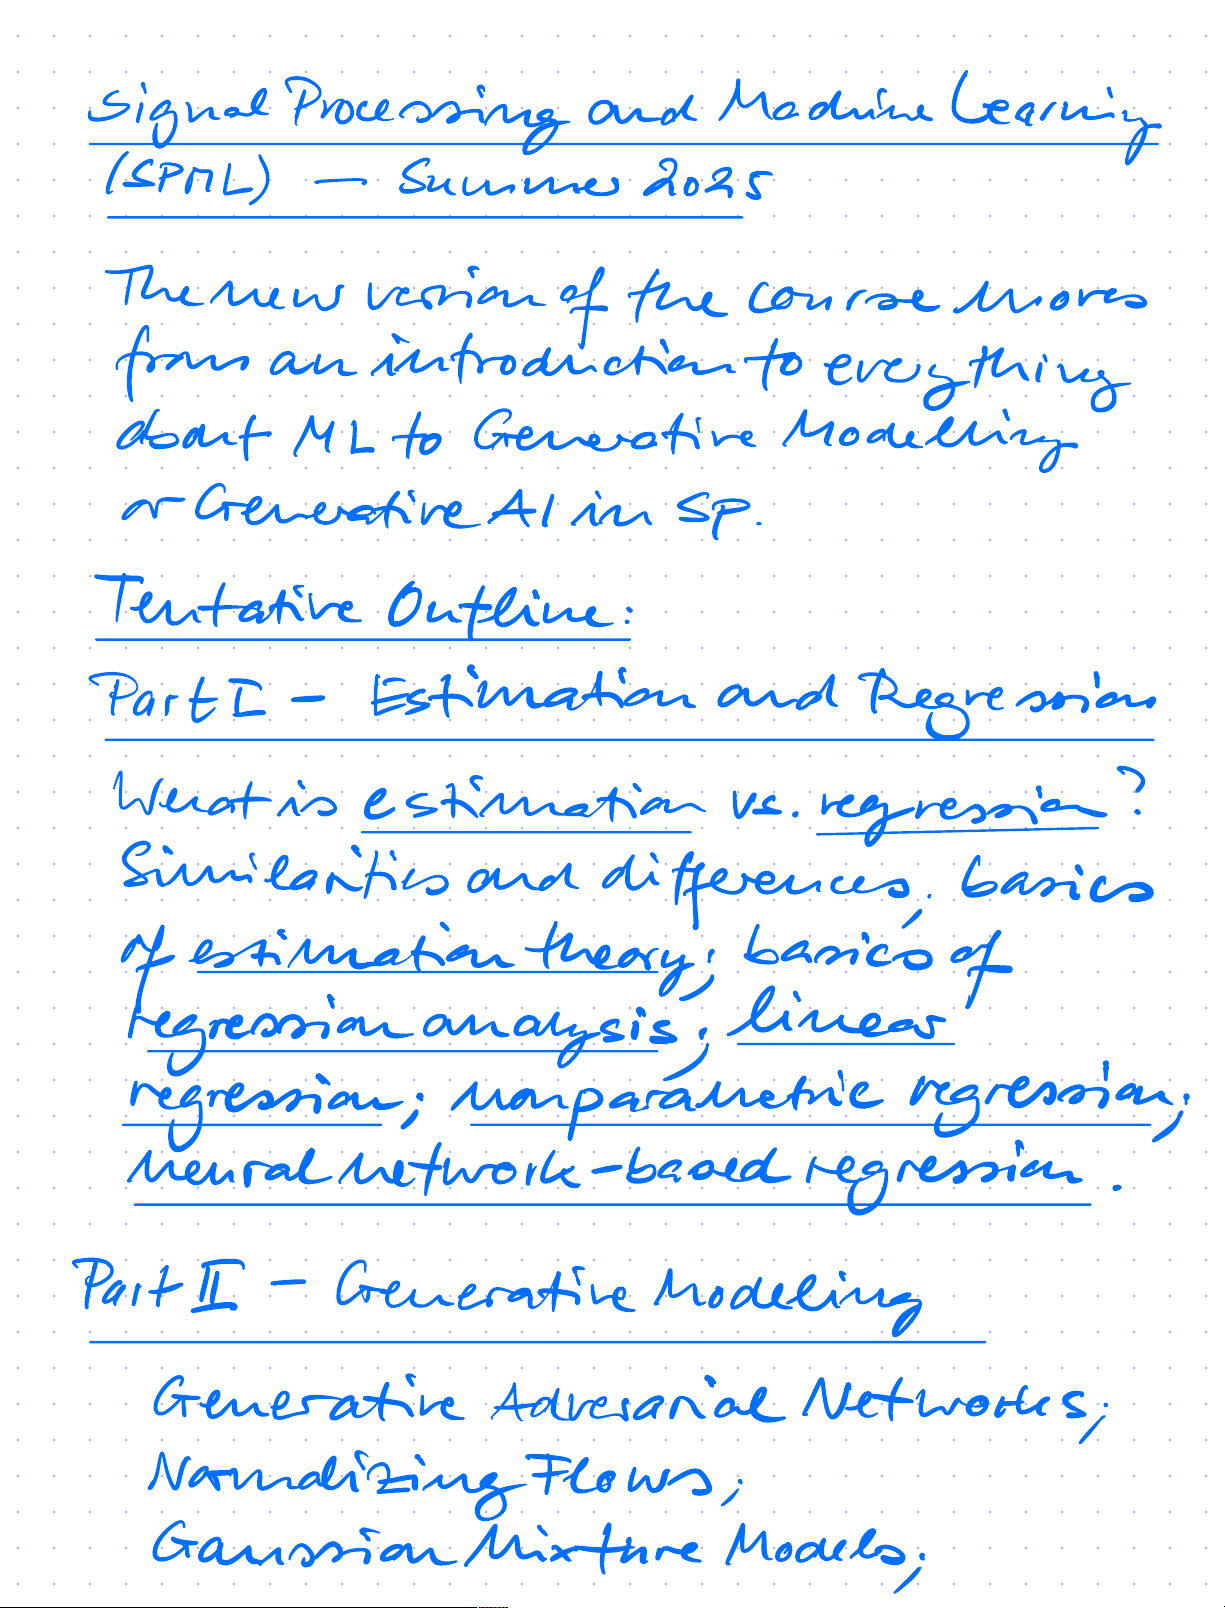 Signal Processing and Machine Learning
(SPML) — Summer 2025
The new version of the course moves
from an introduction to everything
about ML to Generative Modelling
or Generative AI in SP.
Tentative Outline:
Part I - Estimation and Regression
What is estimation vs. regression?
Similarities and differences, basics
of estimation theory; basics of
regression analysis; linear
regression; nonparametric regression;
neural network-based regression.
Part II - Generative Modeling
Generative Adversarial Networks;
Normalizing Flows;
Gaussian Mixture Models;